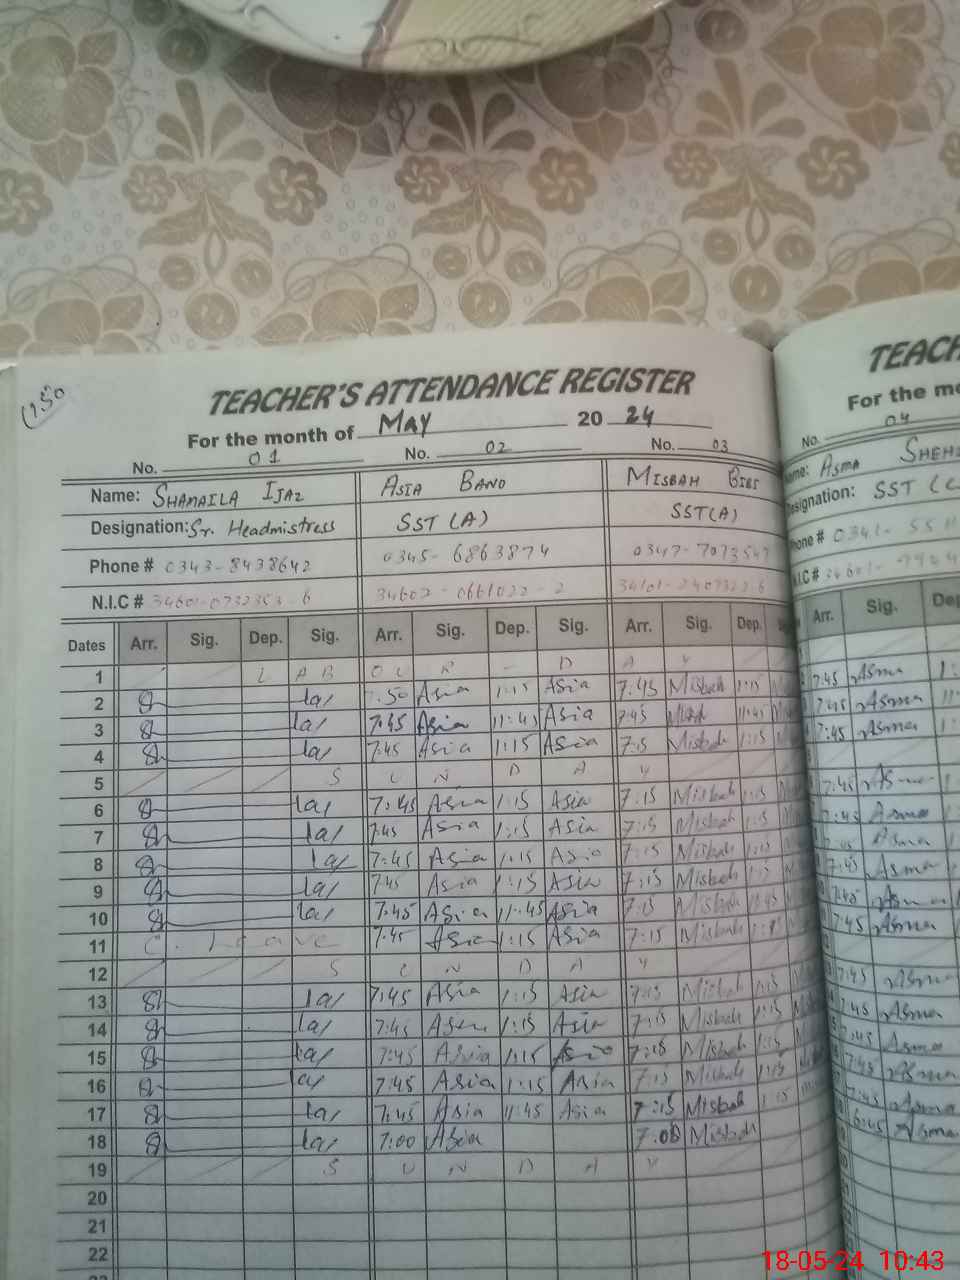 TEACHER'S ATTENDANCE REGISTER
For the month of May 2024
No. 01 No. 02 No. 03
Name: SHAMAILA IJAZ ASIA BANO MISBAH BIBI
Designation: Sr. Headmistress SST (A) SST(A)
Phone # 0343-8438642 0345-6863874
N.I.C #
Dates Arr. Sig. Dep. Sig. Arr. Sig. Dep. Sig. Arr. Sig. Dep.
1 L A B O U R - D A Y
2 Asia 1:15 Asia 7:45 Misbah 1:15
3 7:45 Asia 11:45 Asia 7:45 11:45
4 7:45 Asia 1:15 Asia 7:15 Misbah 1:15
5 S U N D A Y
6 7:45 Asia 1:15 Asia 7:15 Misbah 1:15
7 7:45 Asia 1:15 Asia 7:15 Misbah 1:15
8 7:45 Asia 1:15 Asia 7:15 Misbah 1:15
9 7:45 Asia 1:15 Asia 7:15 Misbah 1:15
10 7:45 Asia 11:45 Asia 7:15 Misbah 11:45
11 C. Leave 7:45 Asia 1:15 Asia 7:15 Misbah
12 S U N D A Y
13 7:45 Asia 1:15 Asia 7:15 Misbah 1:15
14 7:45 Asia 1:15 Asia 7:15 Misbah 1:15
15 7:45 Asia 1:15 Asia 7:15 Misbah 1:15
16 7:45 Asia 1:15 Asia 7:15 Misbah 1:15
17 7:45 Asia 11:45 Asia 7:15 Misbah 1:15
18 7:00 Asia 7:00 Misbah
19 S U N D A Y
20
21
22
TEACH
For the mo
No. 04
ame: ASMA SHEH
esignation: SST
hone #
Arr. Sig. Dep
7:45 Asma
7:45 Asma
7:45 Asma
7:45 Asma
7:45 Asma
Asma
7:45 Asma
7:45 Asma
7:45 Asma
7:45 Asma
7:45 Asma
7:45 Asma
7:45 Asma
7:45 Asma
6:45 Asma
18-05-24 10:43